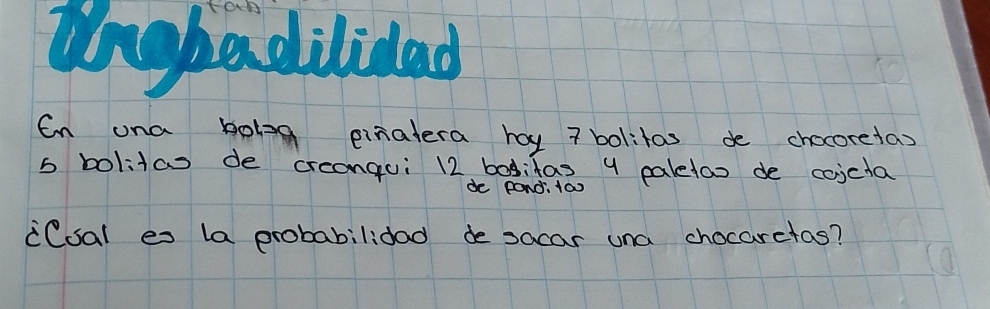 Probadilidad
En una bolsa piñatera hay 7 bolitas de chocoretas
5 bolitas de creonqui 12 bositas 4 paletas de cajeta
de panditas
¿Cual es la probabilidad de sacar una chocaretas?